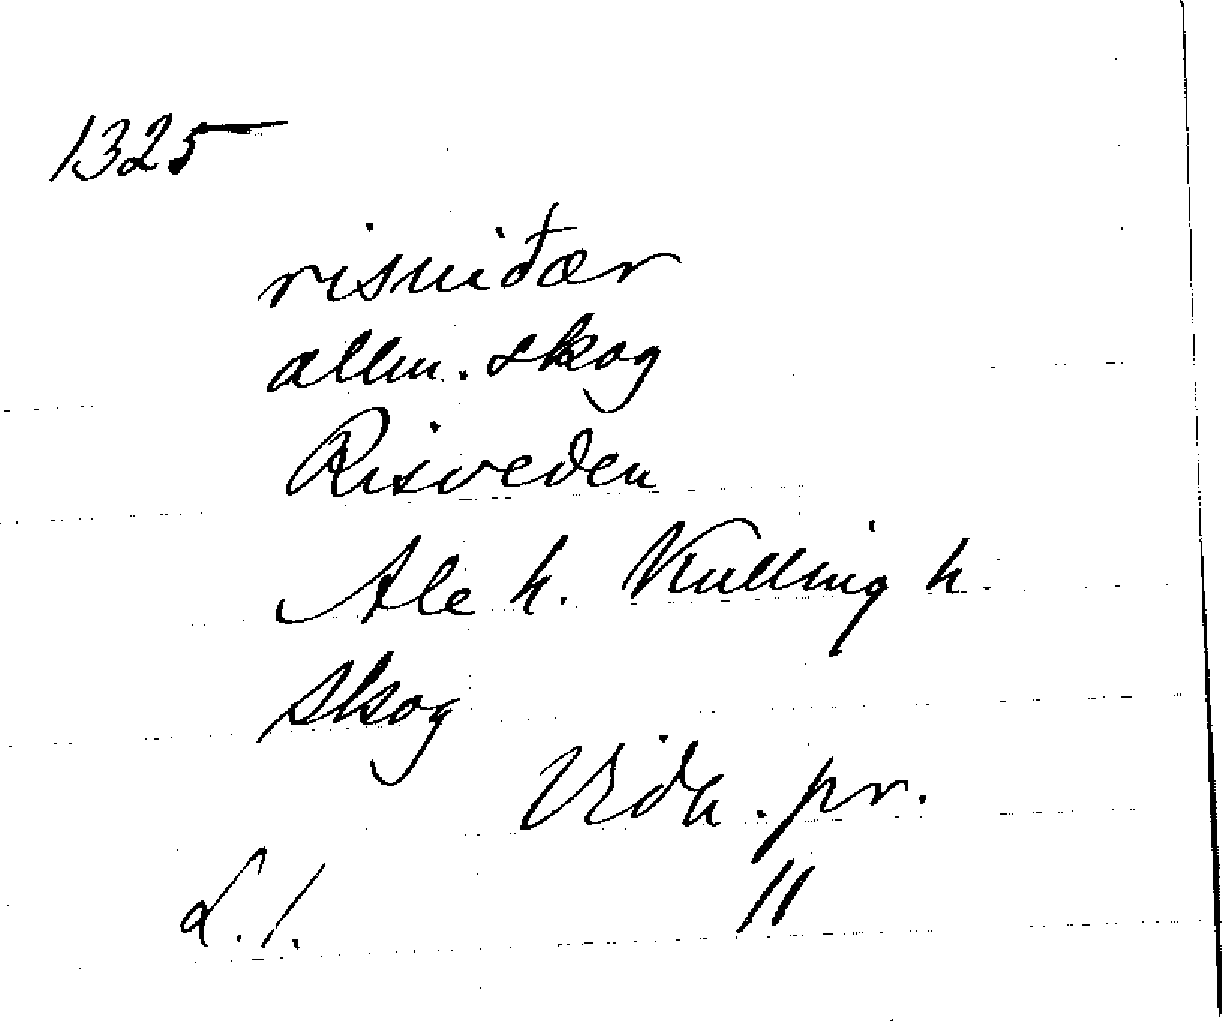 1325
risuiđær
allm. skog
Risveden
Ale h. Kulling h.
skog
Vidh. pr.
L. 1.
11